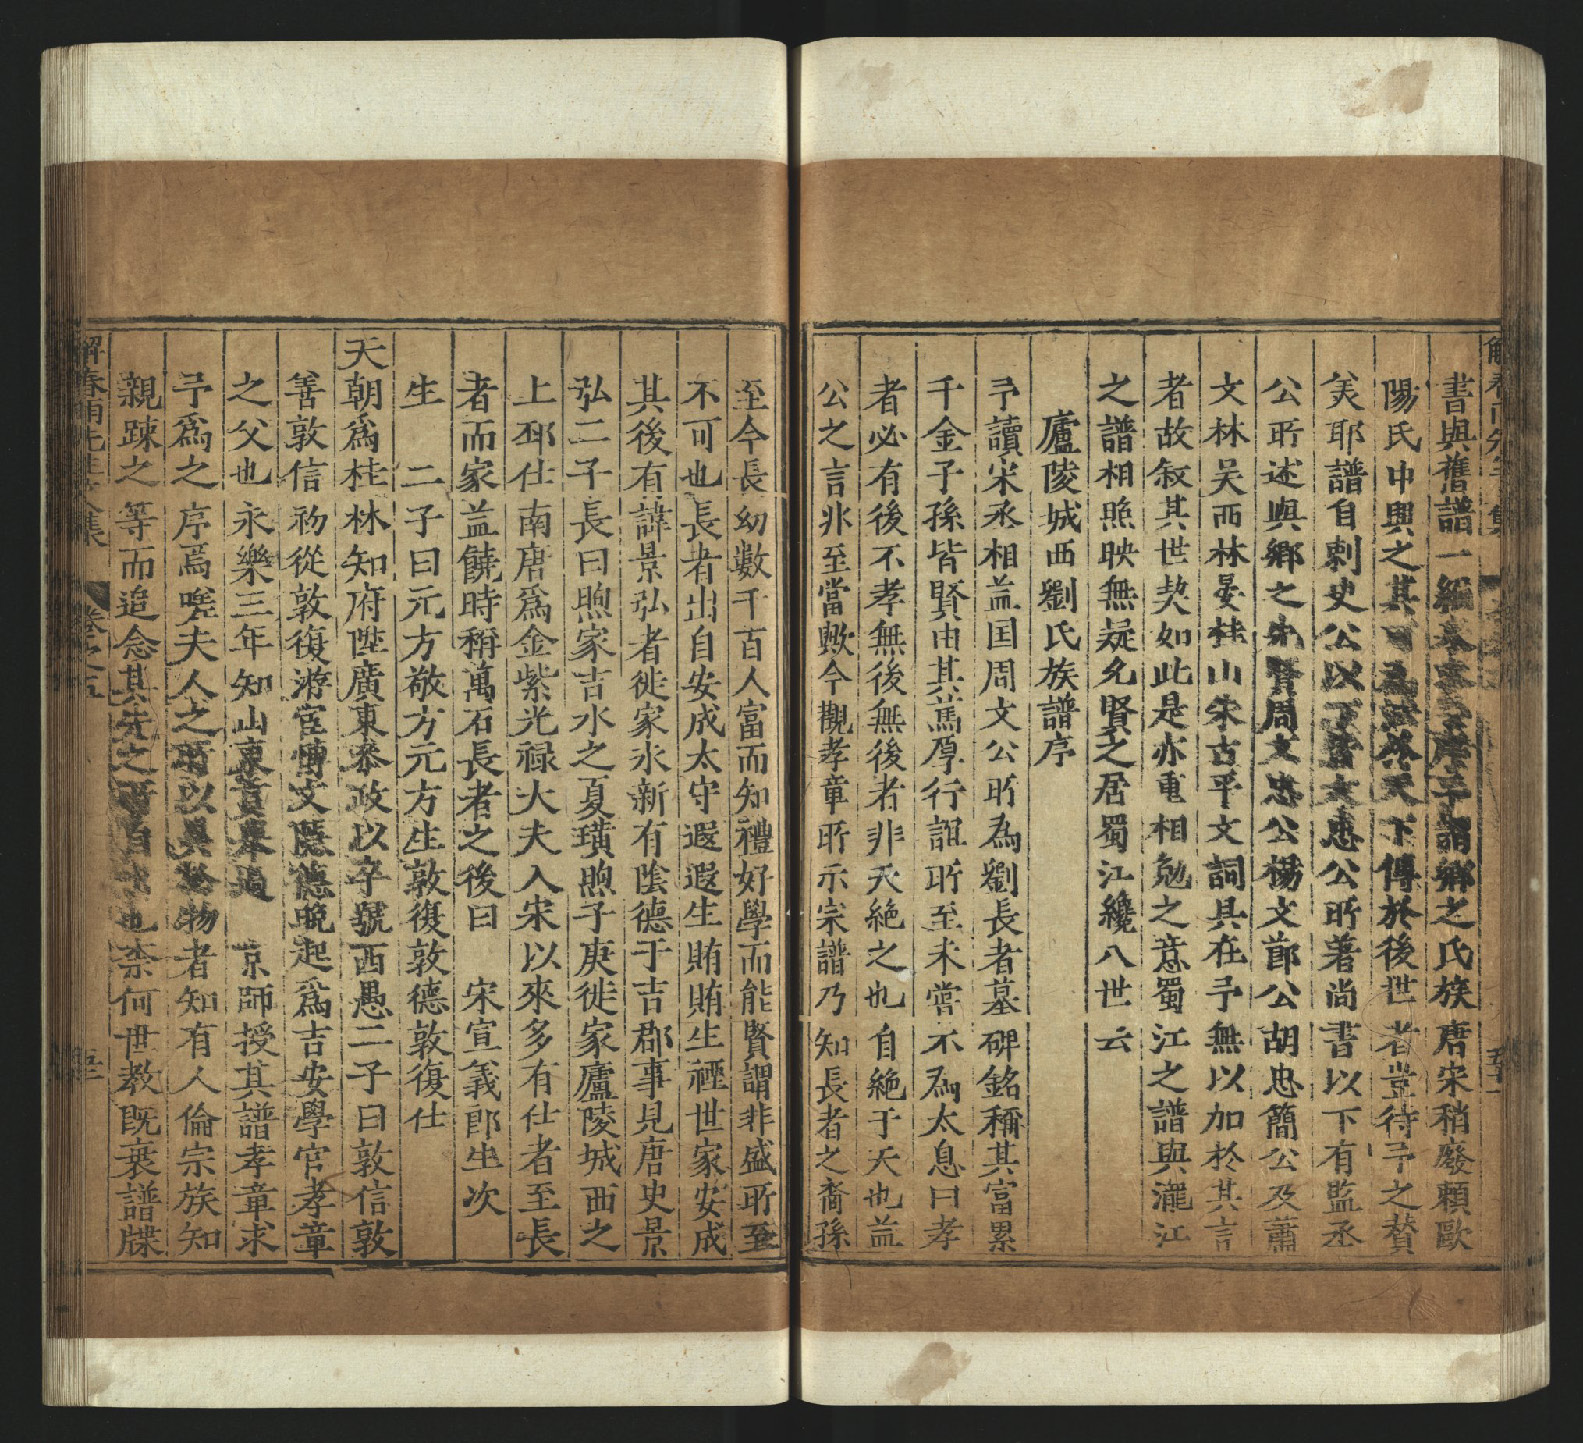 書與舊譜一 鄉之氏族唐宋稍廢賴歐
陽氏中興之其 天下傳於後世者豈待予之賛
羙耶譜自刺史公以下 文忠公所著尚書以下有監丞
公所述與鄉之先賢周文忠公楊文節公胡忠簡公及蕭
文林吴西林晏桂山朱古平文詞具在予無以加於其言
者故敘其世契如此是亦重相勉之意蜀江之譜與瀧江
之譜相照映無疑允賢之居蜀江纔八世云
廬陵城西劉氏族譜序
予讀宋丞相益国周文公所為劉長者墓碑銘稱其富累
千金子孫皆賢由其篤厚行誼所至未嘗不為太息曰孝
者必有後不孝無後無後者非天絶之也自絶于天也益
公之言非至當歟今觀孝章所示宗譜乃知長者之裔孫
至今長幼數千百人富而知禮好學而能賢謂非盛所至
不可也長者出自安成太守遐遐生賄賄生禋世家安成
其後有諱景弘者徙家永新有陰德于吉郡事見唐史景
弘二子長曰煦家吉水之夏璜煦子庚徙家廬陵城西之
上邳仕南唐爲金紫光禄大夫入宋以來多有仕者至長
者而家益饒時稱萬石長者之後曰 宋宣義郎生次
生 二子曰元方敬方元方生敦復敦德敦復仕
天朝爲桂林知府陞廣東叅政以卒號西愚二子曰敦信敦
善敦信初從敦復游宦博文隱德晚起爲吉安學官孝章
之父也永樂三年知山東 京師授其譜孝章求
予爲之序焉嗟夫人之所以異於物者知有人倫宗族知
親踈之等而追念其先之所自出也柰何世教既衰譜牒
解春雨先生文集 卷之五